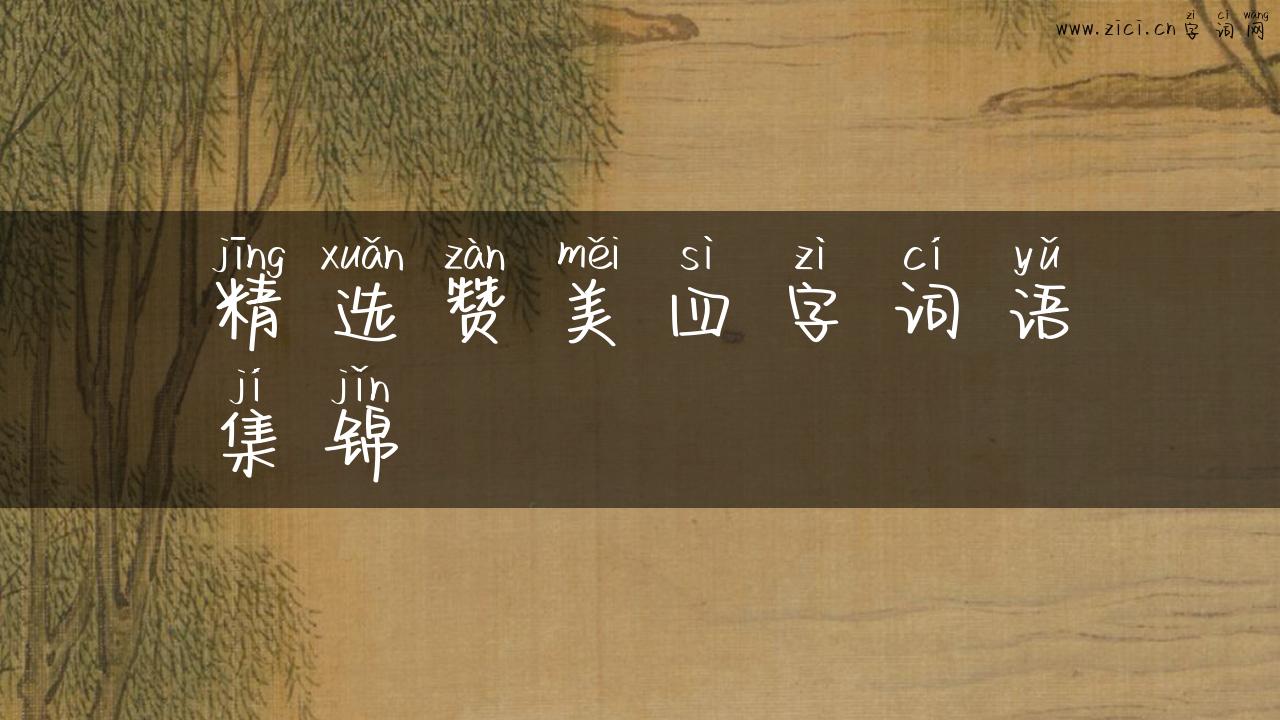 zì cí wǎng
www.zici.cn字词网
jīng xuǎn zàn měi sì zì cí yǔ
精选赞美四字词语
jí jǐn
集锦